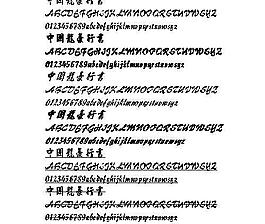 中国龙豪行书
ABCDEFGHIJKLMNOPQRSTUVWXYZ
0123456789abcdefghijklmnopqrstuvwxyz
中国龙豪行书
ABCDEFGHIJKLMNOPQRSTUVWXYZ
0123456789abcdefghijklmnopqrstuvwxyz
中国龙豪行书
ABCDEFGHIJKLMNOPQRSTUVWXYZ
0123456789abcdefghijklmnopqrstuvwxyz
中国龙豪行书
ABCDEFGHIJKLMNOPQRSTUVWXYZ
0123456789abcdefghijklmnopqrstuvwxyz
中国龙豪行书
ABCDEFGHIJKLMNOPQRSTUVWXYZ
0123456789abcdefghijklmnopqrstuvwxyz
中国龙豪行书
ABCDEFGHIJKLMNOPQRSTUVWXYZ
0123456789abcdefghijklmnopqrstuvwxyz